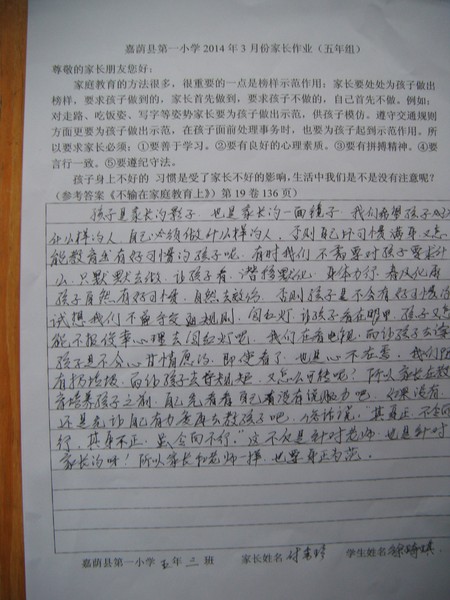 嘉荫县第一小学 2014 年 3 月份家长作业（五年组）
尊敬的家长朋友您好：
家庭教育的方法很多，很重要的一点是榜样示范作用：家长要处处为孩子做出
榜样，要求孩子做到的，家长首先做到，要求孩子不做的，自己首先不做。例如：
对走路、吃饭姿、写字等姿势家长要为孩子做出示范，供孩子模仿。遵守交通规则
方面更要为孩子做出示范，在孩子面前处理事务时，也要为孩子起到示范作用。所
以要求家长必须：①要善于学习。②要有良好的心理素质。③要有拼搏精神。④要
言行一致。⑤要遵纪守法。
孩子身上不好的 习惯是受了家长不好的影响,生活中我们是不是没有注意呢?
(参考答案《不输在家庭教育上》）第 19 卷 136 页）
孩子是家长的影子，也是家长的一面镜子，我们希望孩子
什么样的人，自己必须做什么样的人，否则自己坏习惯满身又怎
能教育出有好习惯的孩子呢，有时我们不需要对孩子要求什
么，只默默去做，让孩子看，潜移默化，身体力行，
孩子自然有好习惯，自然去效仿，否则孩子是不会有好习惯
试想我们不遵守交通规则，闯红灯，让孩子看在眼中，孩子又怎
能不报侥幸心理去闯红灯呢，我们在看电视，而让孩子去
孩子是不会心甘情愿的，即使看了，也是心不在焉，我们
而让孩子去，又怎么可能呢！所以家长在教
育培养孩子之前，自己先看看自己有没有说服力吧，如果没有
还是先让自己有力度再去教孩子吧，俗话说，“其身正，不令而
行，其身不正，虽令而不行，”这不仅是针对老师，也是针对
家长的呀！所以家长和老师一样，也要身正为范。
嘉荫县第一小学 五 年 三 班 家长姓名 学生姓名